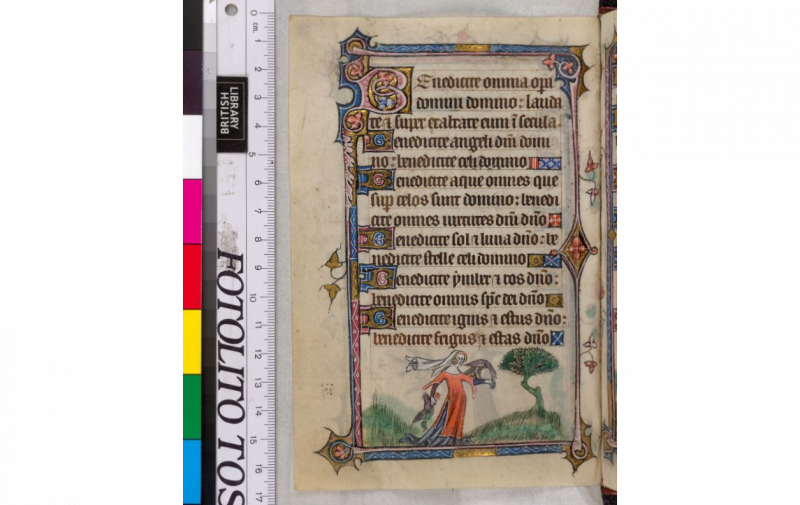 Benedicite omnia op̃a
domini domino: lauda
te ⁊ super exaltate eum ĩ secula.
Benedicite angeli dñi domi
no: benedicite celi domino
Benedicite aque omnes que
sup̱ celos sunt domino: benedi
cite omnes uirtutes dñi dño
Benedicite sol ⁊ luna dño: be
nedicite stelle celi domino
Benedicite ymber ⁊ ros dño:
benedicite omnis sp̃c dei dño
Benedicite ignis ⁊ estus dño:
benedicite frigus ⁊ estas dño
LIBRARY
BRITISH
FOTOLITO TOS
0
cm.
1
2
3
4
5
6
7
8
9
10
11
12
13
14
15
16
17